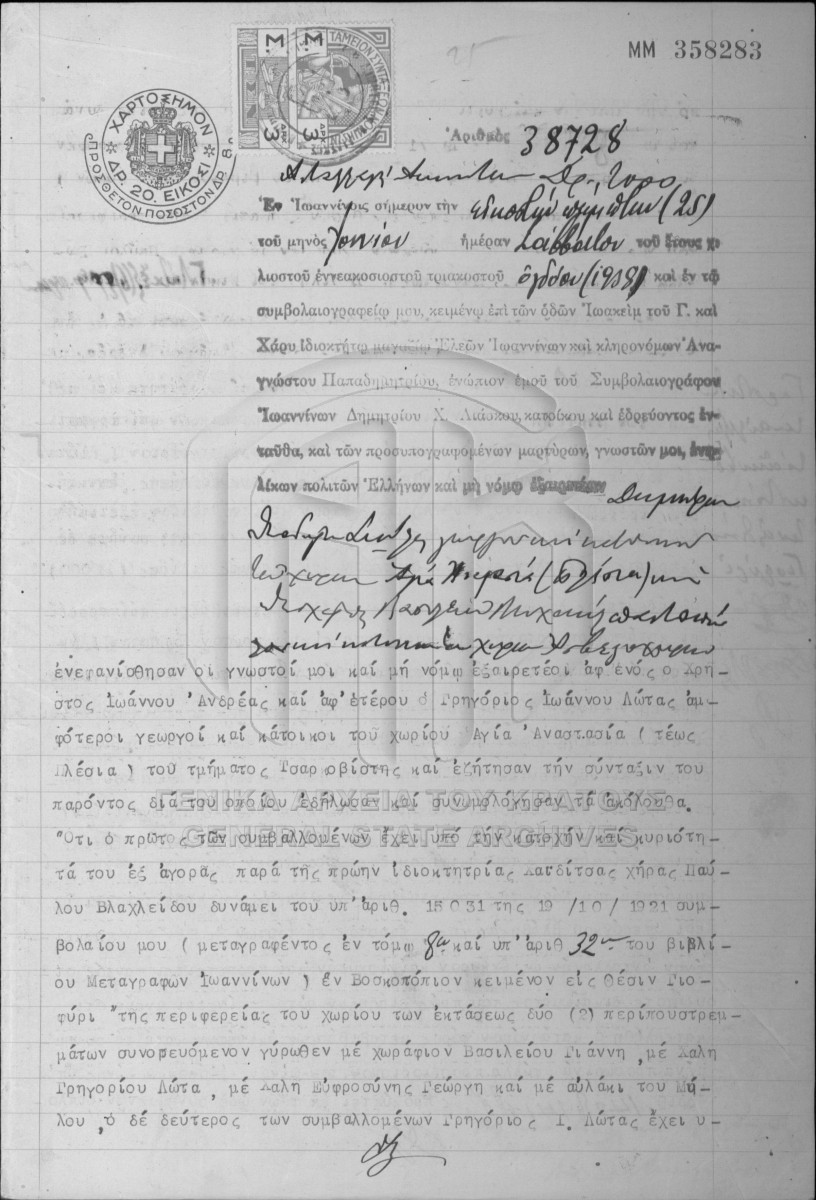 ΜΜ 358283
ΧΑΡΤΟΣΗΜΟΝ
ΔΡ. 20. ΕΙΚΟΣΙ
ΠΡΟΣΘΕΤΟΝ ΠΟΣΟΣΤΟΝ ΔΡ. 8
Ἀριθμὸς 38728
Ἀνταλλαγὴ Ἀκινήτων
Ἐν Ἰωαννίνοις σήμερον τὴν εἰκοστὴν πέμπτην (25)
τοῦ μηνὸς Ἰουνίου ἡμέραν Σάββατον τοῦ ἔτους χι-
λιοστοῦ ἐννεακοσιοστοῦ τριακοστοῦ ὀγδόου (1938) καὶ ἐν τῷ
συμβολαιογραφείῳ μου, κειμένῳ ἐπὶ τῶν ὁδῶν Ἰωακεὶμ τοῦ Γ. καὶ
Χάρυ ἰδιοκτήτῳ μαγαζίῳ Ἐλεῶν Ἰωαννίνων καὶ κληρονόμων Ἀνα-
γνώστου Παπαδημητρίου, ἐνώπιον ἐμοῦ τοῦ Συμβολαιογράφου
Ἰωαννίνων Δημητρίου Χ. Λιάσκου, κατοίκου καὶ ἑδρεύοντος ἐν-
ταῦθα, καὶ τῶν προσυπογραφομένων μαρτύρων, γνωστῶν μοι, ἐνη-
λίκων πολιτῶν Ἑλλήνων καὶ μὴ νόμῳ ἐξαιρετέων
ἐνεφανίσθησαν οἱ γνωστοί μοι καί μή νόμῳ ἐξαιρετέοι ἀφ ἑνός ο Χρή-
στος Ἰωάννου Ἀνδρέας καί ἀφ'ἑτέρου ὁ Γρηγόριος Ἰωάννου Λώτας ἀμ-
φότεροι γεωργοί καί κάτοικοι τοῦ χωρίου Ἁγία Ἀναστασία ( τέως
Πλέσια ) τοῦ τμήματος Τσαρκοβίστης καί ἐζήτησαν τήν σύνταξιν του
παρόντος διά του οποίου ἐδήλωσαν καί συνωμολόγησαν τά ἀκόλουθα.
Ὅτι ὁ πρῶτος τῶν συμβαλλομένων ἔχει ὑπό τήν κατοχήν καί κυριότη-
τά του ἐξ ἀγορᾶς παρά τῆς πρώην ἰδιοκτητρίας Χαιδίτσας χήρας Παύ-
λου Βλαχλείδου δυνάμει του υπ'ἀριθ. 15031 της 19 /10/ 1921 συμ-
βολαίου μου ( μεταγραφέντος ἐν τόμῳ 8ῳ καί υπ'ἀριθ 32 του βιβλί-
ου Μεταγραφῶν Ἰωαννίνων ) ἐν Βοσκοτόπιον κειμένον εἰς θέσιν Γιο-
φύρι της περιφερείας του χωρίου των ἐκτάσεως δύο (2) περίπουστρεμ-
μάτων συνορευόμενον γύρωθεν μέ χωράφιον Βασιλείου Γιάννη ,μέ Χαλη
Γρηγορίου Λώτα , μέ Χαλη Εὐφροσύνης Γεώργη καί μέ αὐλάκι του Μύ-
λου ,ὁ δέ δεύτερος των συμβαλλομένων Γρηγόριος Ι. Λώτας ἔχει υ-
ΓΕΝΙΚΑ ΑΡΧΕΙΑ ΤΟΥ ΚΡΑΤΟΥΣ
GENERAL STATE ARCHIVES